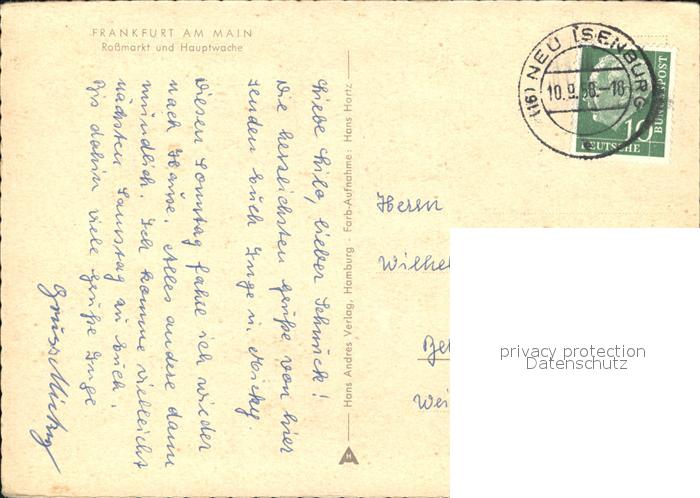 FRANKFURT AM MAIN
Roßmarkt und Hauptwache
Liebe Milo, lieber Schnuck!
Die herzlichsten Grüße von hier
senden Euch Inge u. Micky.
Diesen Sonntag fahre ich wieder
nach Hause. Alles andere dann
mündlich. Ich komme vielleicht
nächsten Samstag zu Euch.
Bis dahin viele Grüße Inge
Gruss Micky
Hans Andres Verlag, Hamburg Farb-Aufnahme: Hans Hartz
H
(16) NEU ISENBURG
10.9. -18
10
DEUTSCHE
BUNDESPOST
Herrn
Wilhel
Be
Wei
privacy protection
Datenschutz